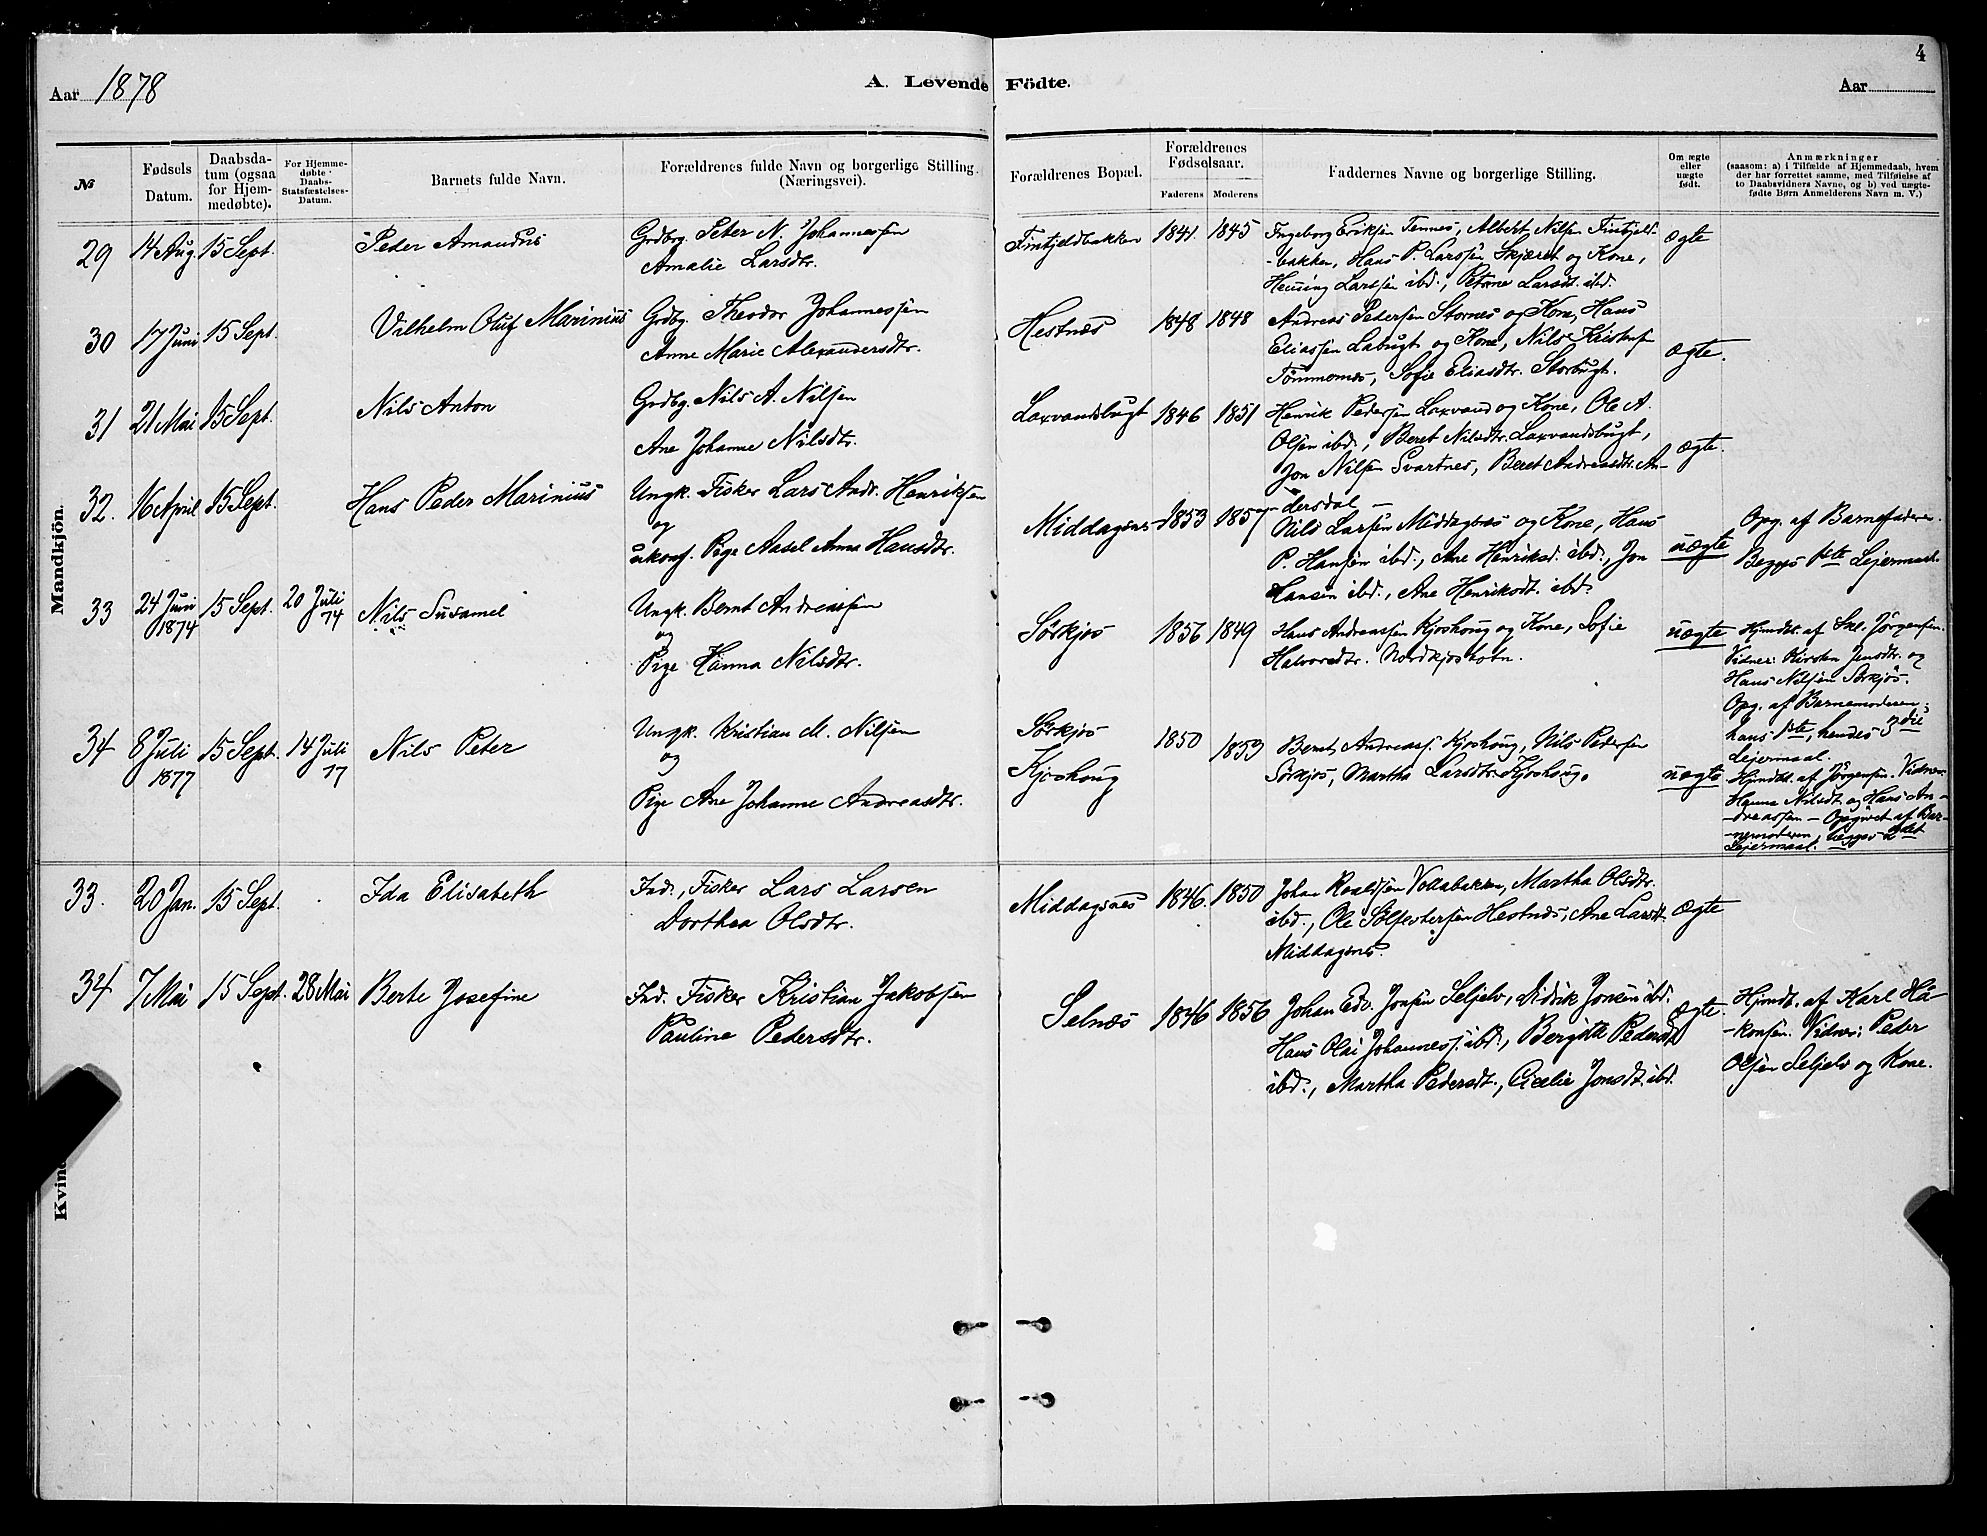 4
Aar 1878
A. Levende Födte.
Aar
№
Fødsels Datum.
Daabsdatum (ogsaa for Hjemmedøbte).
For Hjemmedøbte Daabs-Statsfæstelses-Datum.
Barnets fulde Navn.
Forældrenes fulde Navn og borgerlige Stilling. (Næringsvei).
Forældrenes Bopæl.
Forældrenes Fødselsaar.
Faderens Moderens
Faddernes Navne og borgerlige Stilling.
Om ægte eller uægte født.
Anmærkninger
(saasom: a) i Tilfælde af Hjemmedaab, hvem
der har forrettet samme, med Tilføielse af
to Daabsvidners Navne, og b) ved uægte-
fødte Børn Anmelderens Navn m. V.)
Mandkjön.
29 14 Aug. 15 Sept. Peder Amandus
Grdbrg. Peter N. Johannessen
Amalie Larsdtr.
Fintjeldbakken 1841. 1845
Ingeborg Eriksen Tennes, Albert Nilsen Fintjeld-
-bakken, Hans P. Larssen Skjæret og Kone,
Henning Larssen ibd., Petrine Larsdt. ibd.
ægte
30 17 Juni 15 Sept. Vilhelm Oluf Marinius
Grdbg. Theodor Johannessen
Anne Marie Alexandersdtr.
Hestnæs 1848 1848
Andreas Pedersen Stornes og Kone, Hans
Eliassen Labugt og Kone, Nils Kristof
Tømmernes, Sofie Eliasdtr. Storbugt.
ægte.
31 21 Mai 15 Sept. Nils Anton
Grdbg. Nils A. Nilsen
Ane Johanne Nilsdtr.
Laxvandsbugt 1846 1851
Henrik Pedersen Laxvand og Kone, Ole A.
Olsen ibd., Beret Nilsdtr. Laxvandsbugt,
Jon Nilsen Svartnes, Beret Andreasdtr. An-
dersdal —
ægte.
32. 16 April 15 Sept. Hans Peder Marinius
Ungk. Fisker Lars Andr. Henriksen
og
ukonf. Pige Aasel Anna Hansdtr.
Middagsnes 1853 1857
Nils Larsen Middagsnes og Kone, Hans
P. Hansen ibd., Ane Henriksd. ibd., Jon
Hansen ibd., Ane Henriksdt. ibd.
uægte
Opg. af Barnefaderen.
Begges 1ste Lejermaal.
33 24 Juni 1874 15 Sept. 20 Juli 74 Nils Susamel
Ungk. Bernt Andreassen
og
Pige Hanna Nilsdtr.
Sørkjos 1856 1849
Hans Andreassen Kjoshoug og Kone, Sofie
Halvorsdtr. Nordkjosbotn.
uægte
Hjmdbt. af Skl. Jörgensen.
Vidner: Kirsten Jensdtr. og
Hans Nilsen Sørkjos.
Opg. af Barnemoderen;
hans 1ste, hendes 3die
Lejermaal.
34 8 Juli 1877 15 Sept. 14 Juli 77 Nils Peter
Ungk. Kristian M. Nilsen
og
Pige Ane Johanne Andreasdtr.
Sørkjos
Kjoshoug
1850 1853
Bernt Andreass. Kjoshoug, Nils Pedersen
Sørkjos, Martha Larsdtr. Kjoshoug.
uægte
Hjmdbt. af Jørgensen. Vidner:
Hanna Nilsdt. og Hans An-
-dreassen — Opgivet af Bar-
-nemoderen, begges 2det
Lejermaal.
33. 20 Jan. 15 Sept. Ida Elisabeth
Ind., Fisker Lars Larsen
Dorthea Olsdtr.
Middagsnes 1846. 1850
Johan Roaldsen Vollabakken, Martha Olsdtr.
ibd., Ole Sölfestersen Hestnæs, Ane Larsdt.
Middagsnes.
ægte
34 7 Mai 15 Sept. 28 Mai Berte Josefine
Ind. Fisker Kristian Jakobsen
Pauline Pedersdtr.
Selnæs 1846 1856
Johan Edv. Jonsen Seljelv, Didrik Jonsen ibd.
Hans Olai Johanness. ibd., Bergitte Pedersdt.
ibd., Martha Pedersdt., Cicelie Jonsdt. ibd.
ægte.
Hjmdbt. af Karl Hå-
-konsen. Vidner: Peder
Olsen Seljelv og Kone.
Kvind